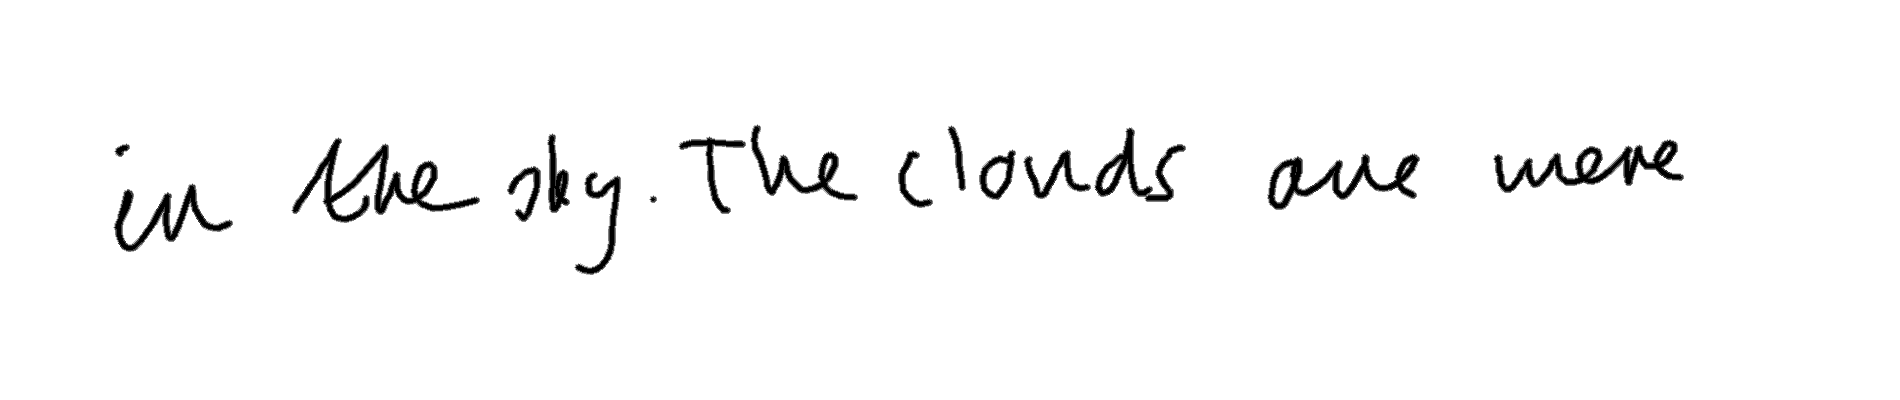 in the sky. The clouds are mere